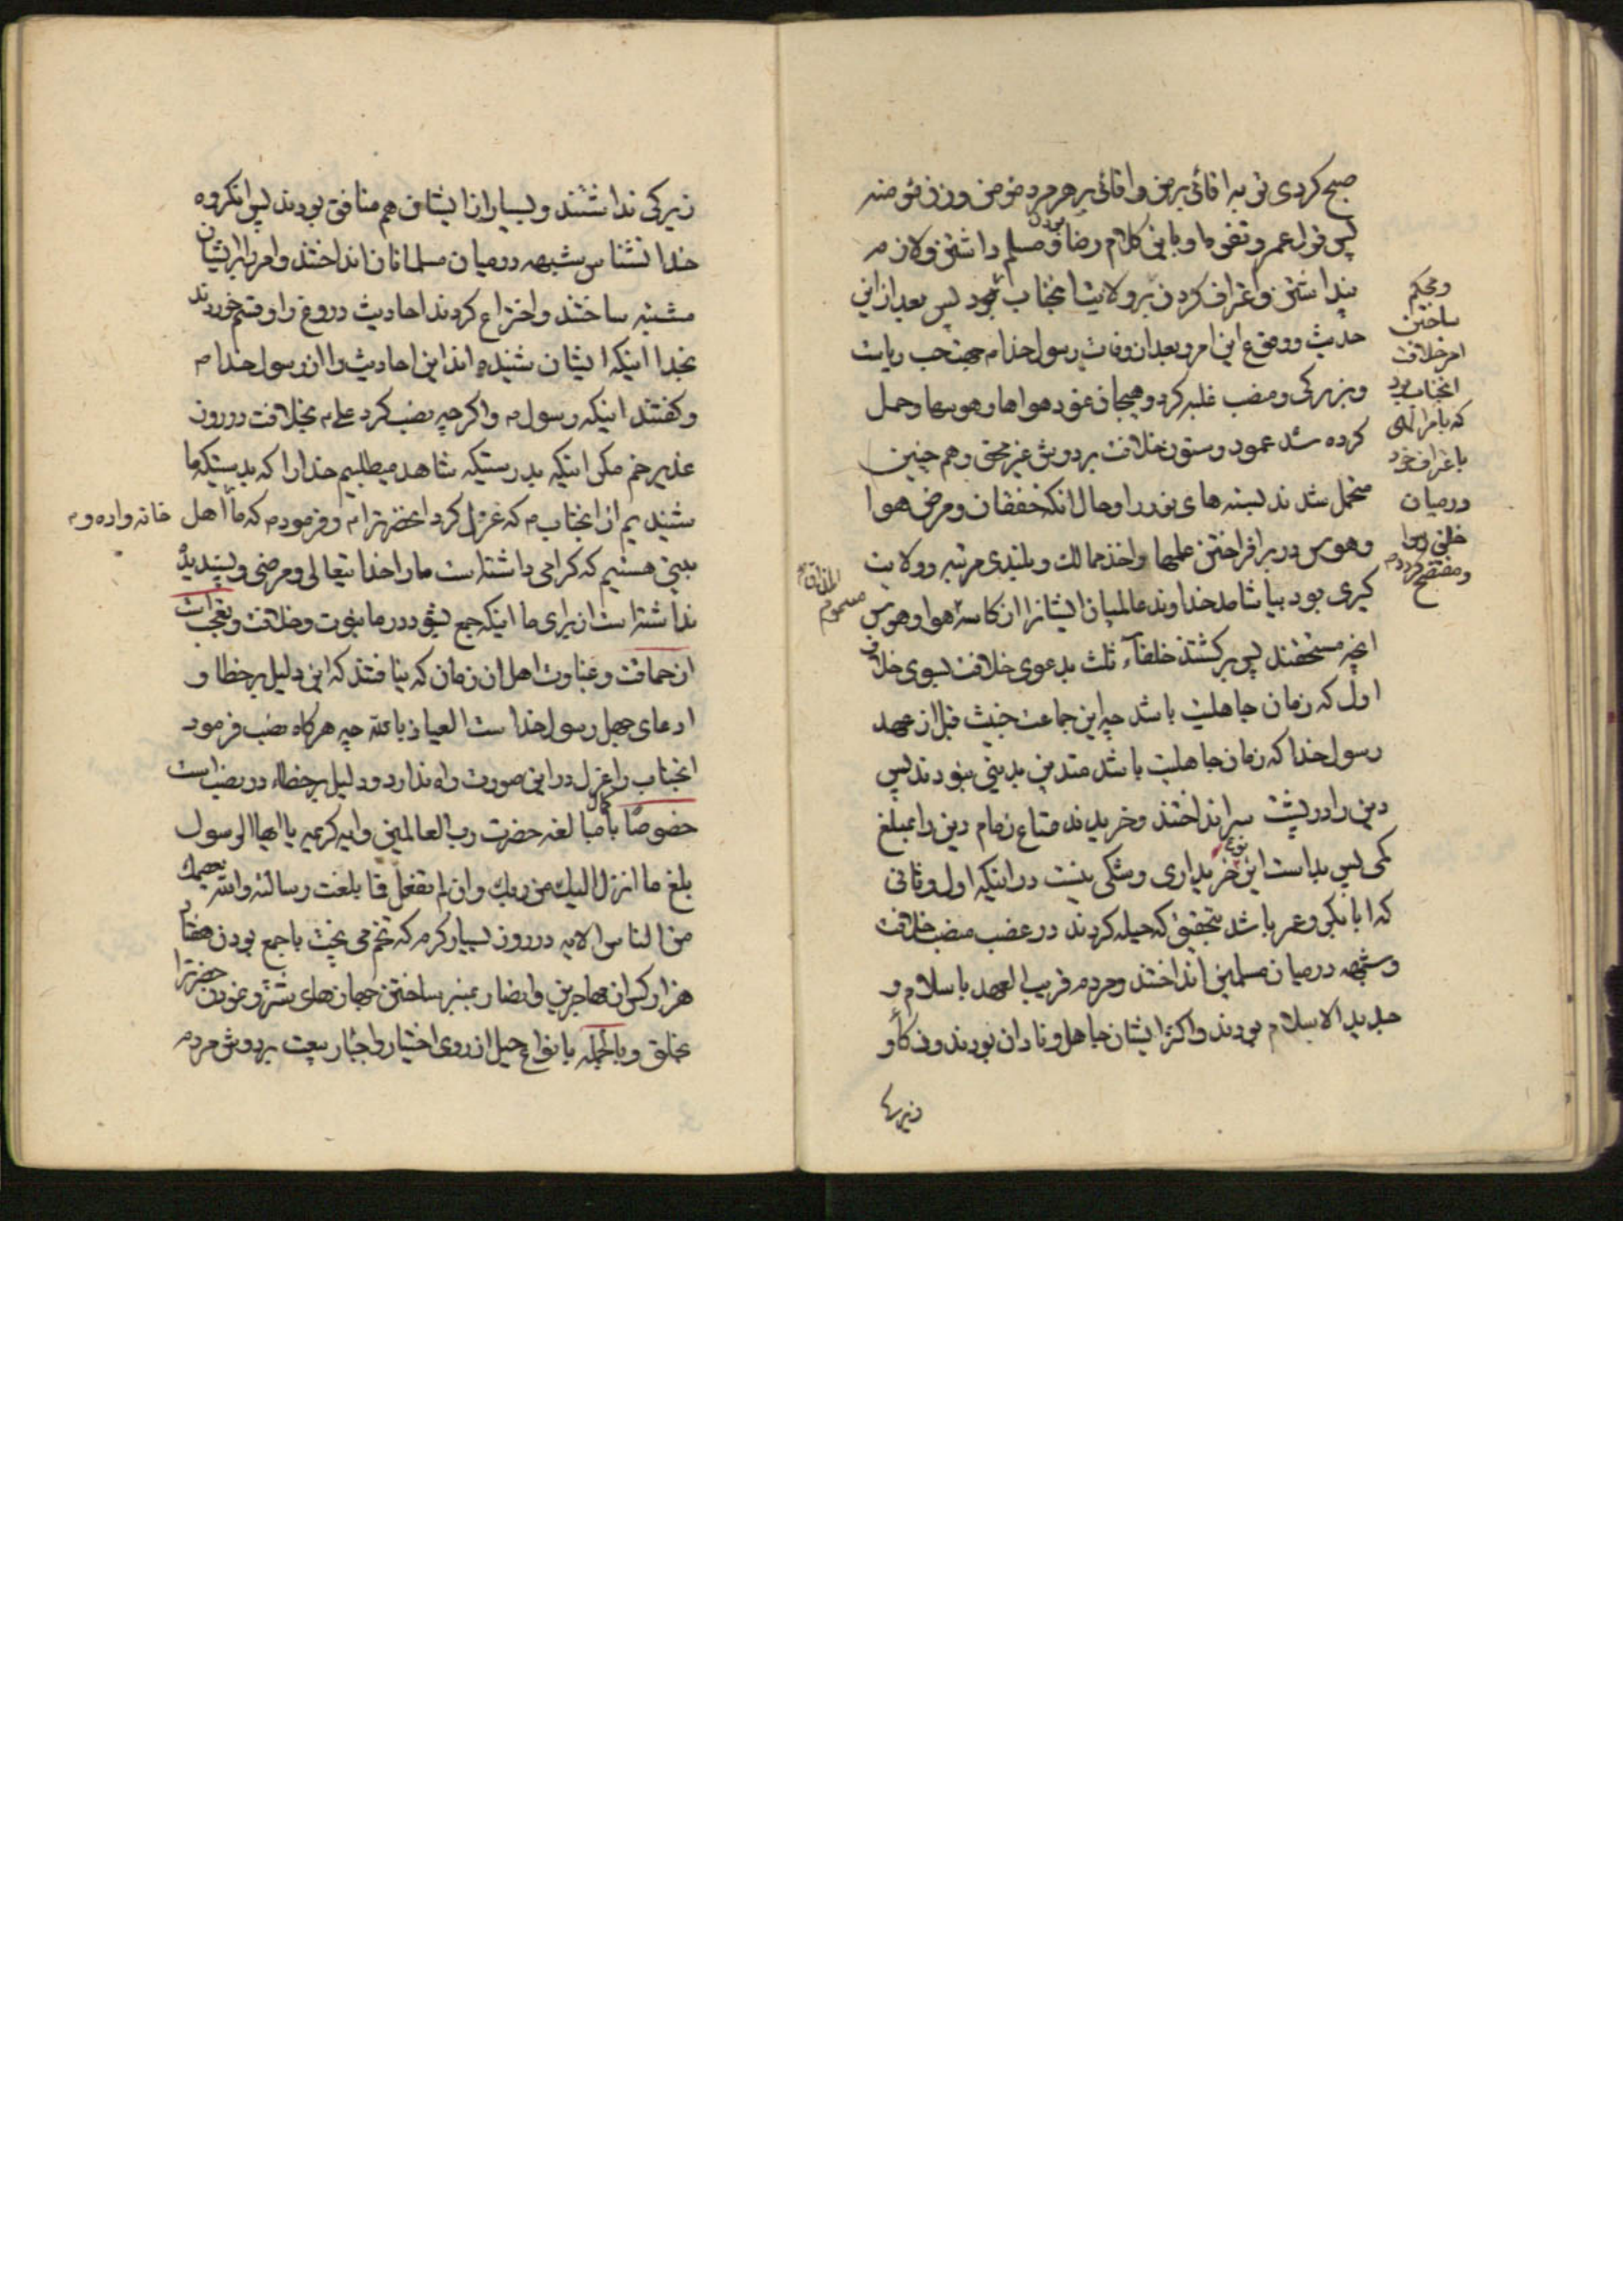 صبح کردی تو به اقائی بر من واقائی بر هر مرد مومن و زن مؤمنه
پس قول عمر و تفوه او باین کلام رضا بودن و مسلم داشتن و لازم
پنداشتن واعتراف کردن بر ولایت انجناب بود پس بعد از این
حدیث ووقوع این امر و بعد از وفات رسول خدا م جهت حب ریاست
وبزرکی ومنصب غلبه کرد وهیجان نمود هواها وهوسها وحمل
کرده شد عمود وستون خلافت بر دوش غیر محق وهم چنین
متحمل شدند بسته های بنود را وحال انکه خفقان ومرض هوا
وهوس در برافراختن علمها واخذ ممالک وبلندی مرتبه وولایت
کیری بود بیاشامد خداوند عالمیان ایشانرا از کاسه هوا وهوس
انچه مستحقند پس برکشتند خلفاء ثلث بدعوی خلافت بسوی خلاف
اول که زمان جاهلیت باشد چه این جماعت خبیث قبل از عهد
رسول خدا که زمان جاهلیت باشد متدین بدینی نبودند پس
دین را در پشت سر انداختند وخریدند متاع زمام دین را بمبلغ
کمی پس بد است این نوع خریداری وشکی نیست در اینکه اول وثانی
که ابابکر وعمر باشد بتحقیق که حیله کردند در غصب منصب خلافت
وشبهه در میان مسلمین انداختند ومردم قریب العهد باسلام و
جدید الاسلام بودند واکثر ایشان جاهل ونادان بودند وذکاو
زیرکی
ومحکم
ساختن
امر خلافت
انجناب بود
که بامر الهی
باعتراف خود
در میان
خلق رسوا
ومفتضح کردد م
مسموم
زیرکی نداشتند وبسیار از ایشان هم منافق بودند پس انکروه
خدا نشناس شبهه در میان مسلمانان انداختند وامر را بر ایشان
مشتبه ساختند واختراع کردند احادیث دروغ را وقسم خوردند
بخدا اینکه ایشان شنیده اند این احادیث را از رسول خدا م
وکفتند اینکه رسول م واکرچه نصب کرد علی م بخلافت در روز
غدیر خم مکر اینکه بدرستیکه شاهد میطلبیم خدا را که بدرستیکه ما
شنیدیم از انجناب م که عزل کرد انحضرترا م وفرمود م که ما اهل خانه واده و م
بیتی هستیم که کرامی داشته است ما را خدا یتعالی ومرضی وپسندیده
نداشته است از برای ما اینکه جمع بشود در ما نبوت وخلافت وتعجب است
از حماقت وغباوت اهل ان زمان که نیافتند که این دلیل بر خطا و
ادعای جهل رسول خدا ست العیاذ بالله چه هر کاه نصب فرمود
انجناب را عزل در این صورت راه ندارد ودلیل بر خطاء در نصب است
خصوصًا با کمال مبالغه حضرت رب العالمین وایه کریمه یا ایها الرسول
بلغ ما انزل الیک من ربک وان لم تفعل فما بلغت رسالته والله یعصمک
من الناس الایه در روز بسیار کرم که تخم می پخت با جمع بودن هفتاد
هزار کس از مهاجرین وانصار بمنبر ساختن جهازهای شتر ونمودن حضرترا
بخلق وبالجمله بانواع حیل از روی اختیار واجبار بیعت بر دوش مردم